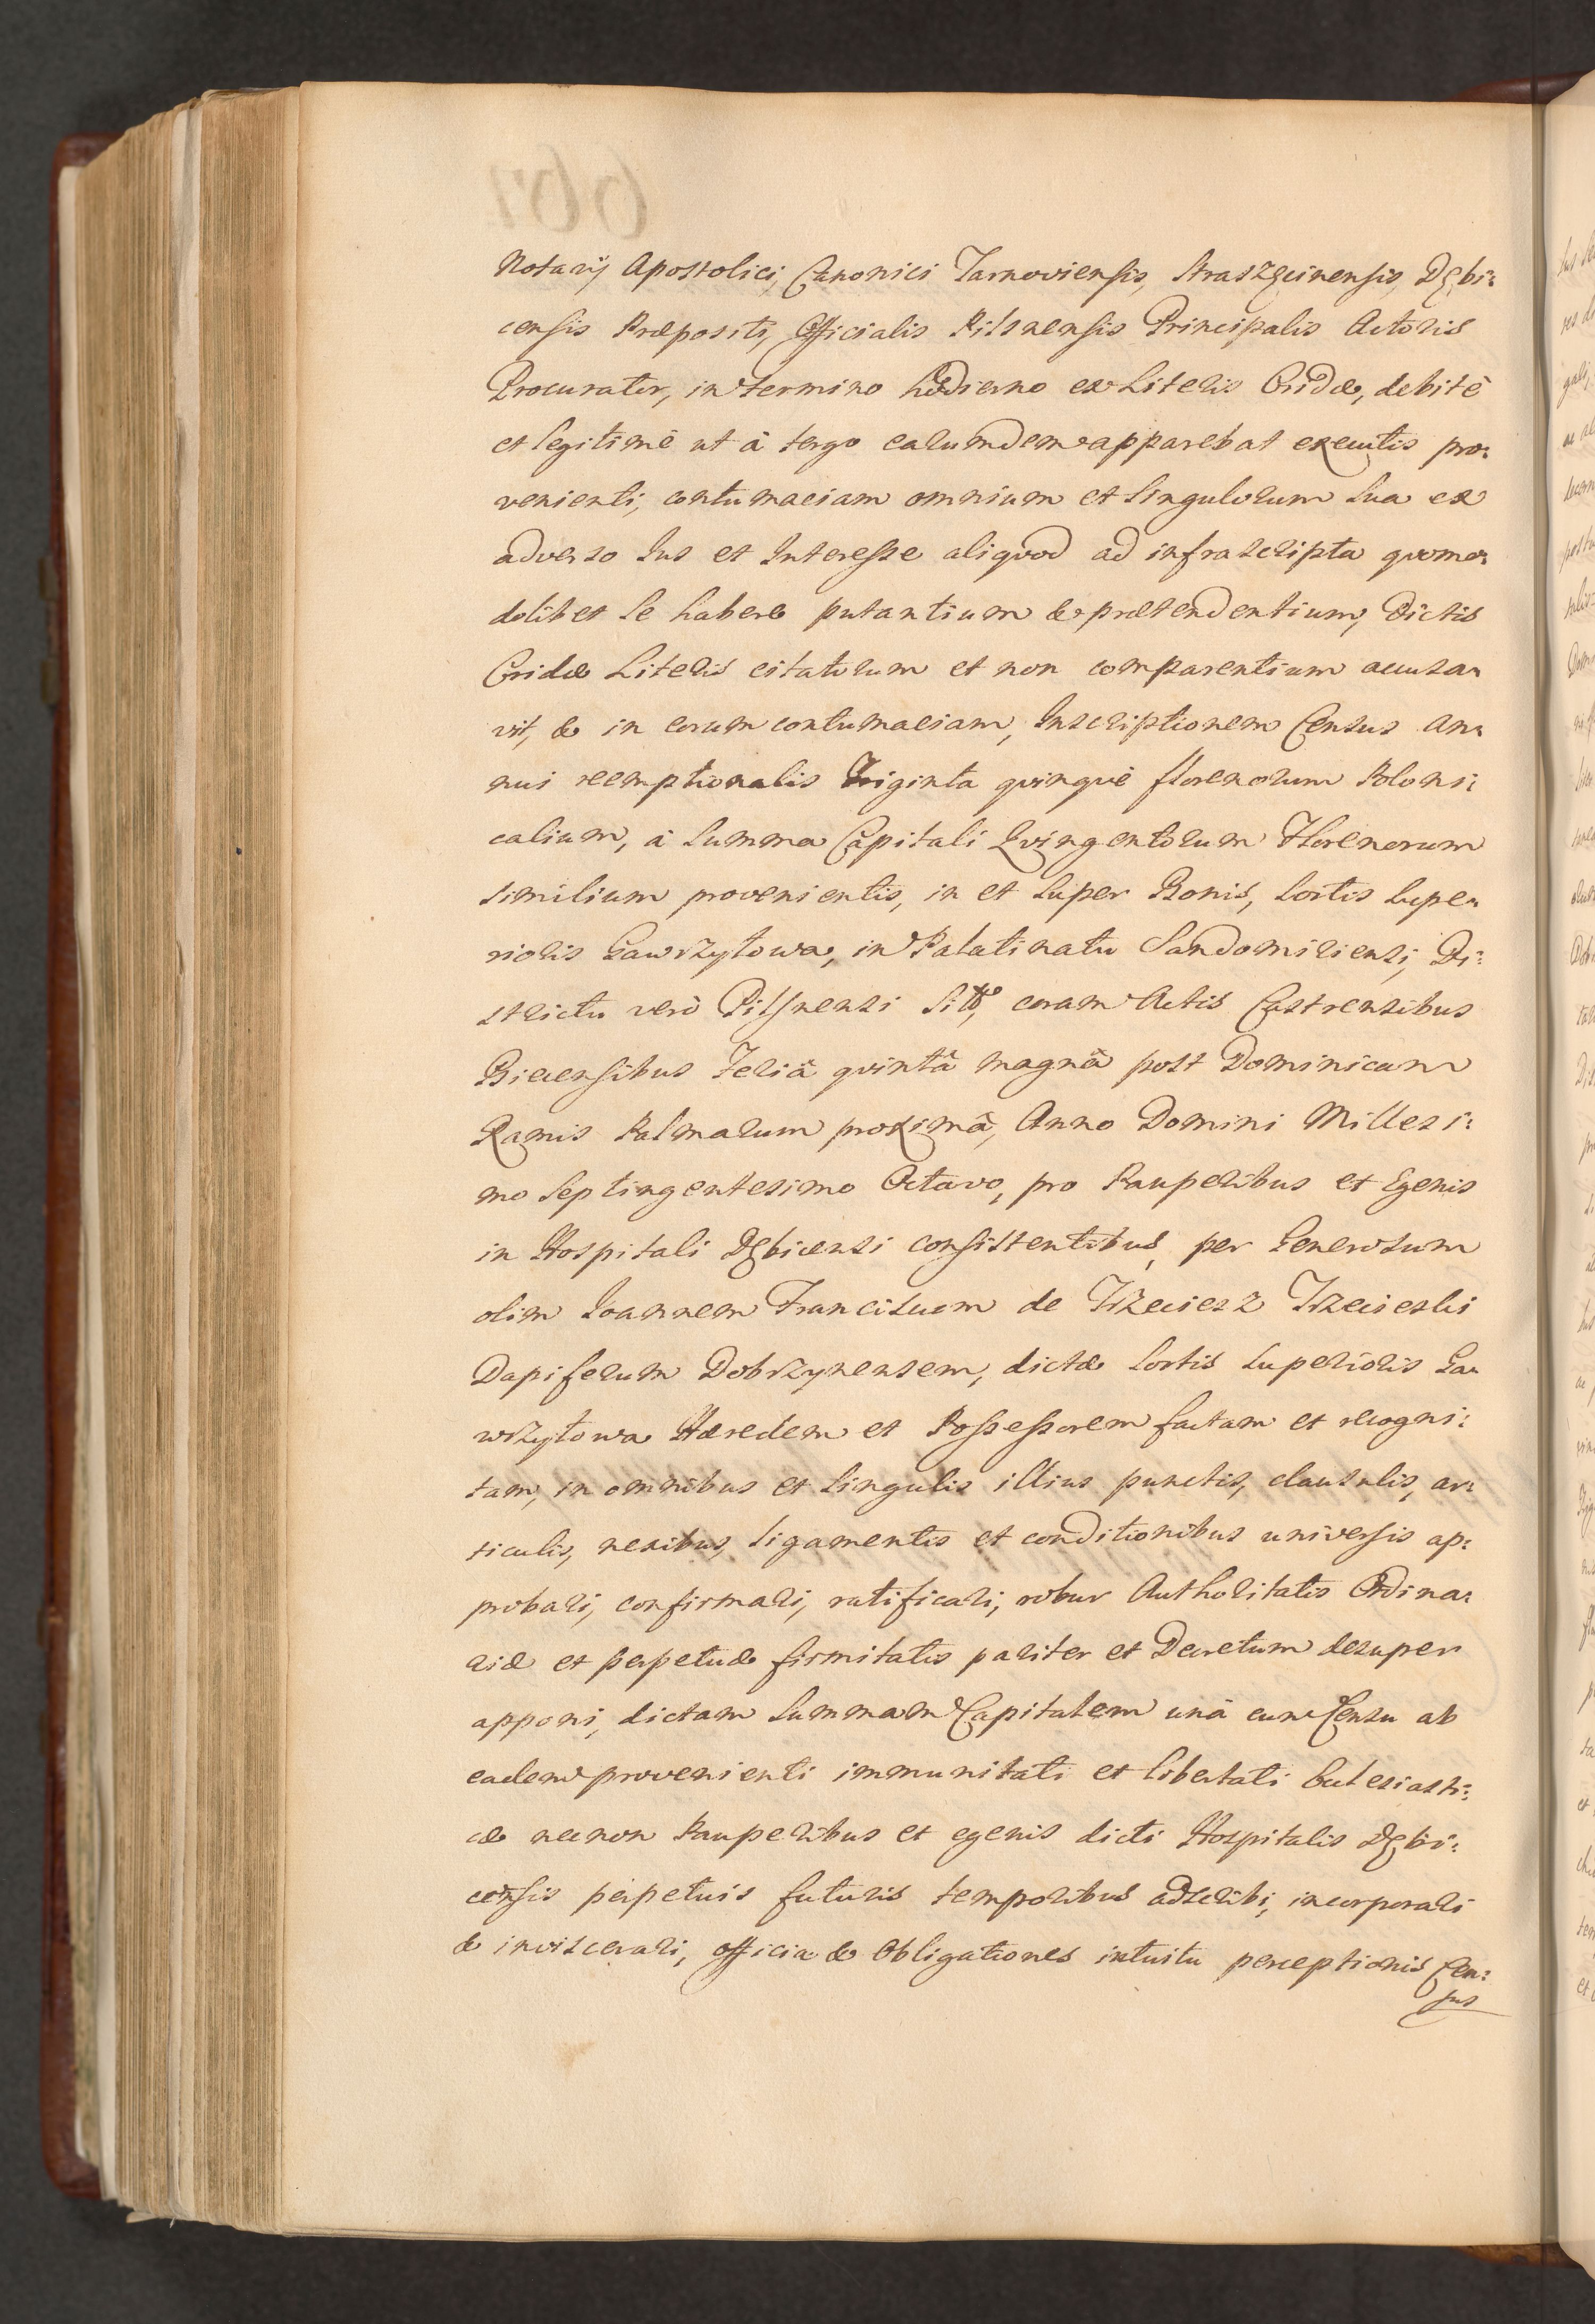 Notarij Apostolici, Canonici Tarnoviensis, Straszęcinensis, Dębi:
censis Præpositi, Officialis Pilsnensis Principalis Actoris
Procurator, in termino hodierno ex Literis Cridæ, debitè
et legitimè ut à tergo earumdem apparebat executis pro:
venienti, contumaciam omnium et Singulorum Sua ex
adverso Jus et Interesse aliquod ad infrascripta quomo:
dolibet Se habere putantium & prætendentium, Dictis
Cridæ Literis citatorum et non comparentium accusa:
vit, & in eorum contumaciam, Inscriptionem Census an:
nui reemptionalis Triginta quinquè florenorum Poloni:
calium, à Summa Capitali Quingentorum Florenorum
similium provenientis, in et Super Bonis, Sortis Supe:
rioris Gawrzyłowa, in Palatinatu Sandomiriensi, Di:
strictu verò Pilsnensi coram Actis Castrensibus
Biecensibus Feriâ quintâ magnâ post Dominicam
Ramis Palmarum proximâ, Anno Domini Millesi:
mo Septingentesimo Octavo, pro Pauperibus et Egenis
in Hospitali Dębicensi consistentibus, per Generosum
olim Joannem Franciscum de Trzeciesz Trzecieski
Dapiferum Dobrzynensem, dictæ Sortis Superioris Ga:
wrzyłowa Hæredem et Possessorem factam et recogni:
tam, in omnibus et Singulis illius punctis, clausulis, ar:
ticulis, nexibus, ligamentis et conditionibus universis ap:
probari, confirmari, ratificari, robur Authoritatis Ordina:
riæ et perpetuæ firmitatis pariter et Decretum desuper
apponi, dictam Summam Capitalem unà cum Censu ab
eadem provenienti immunitati et libertati Ecclesiasti:
cæ necnon Pauperibus et egenis dicti Hospitalis Dębi:
censis perpetuis futuris temporibus adscribi, incorporari
& inviscerari, officia & Obligationes intuitu perceptionis Cen:
sus